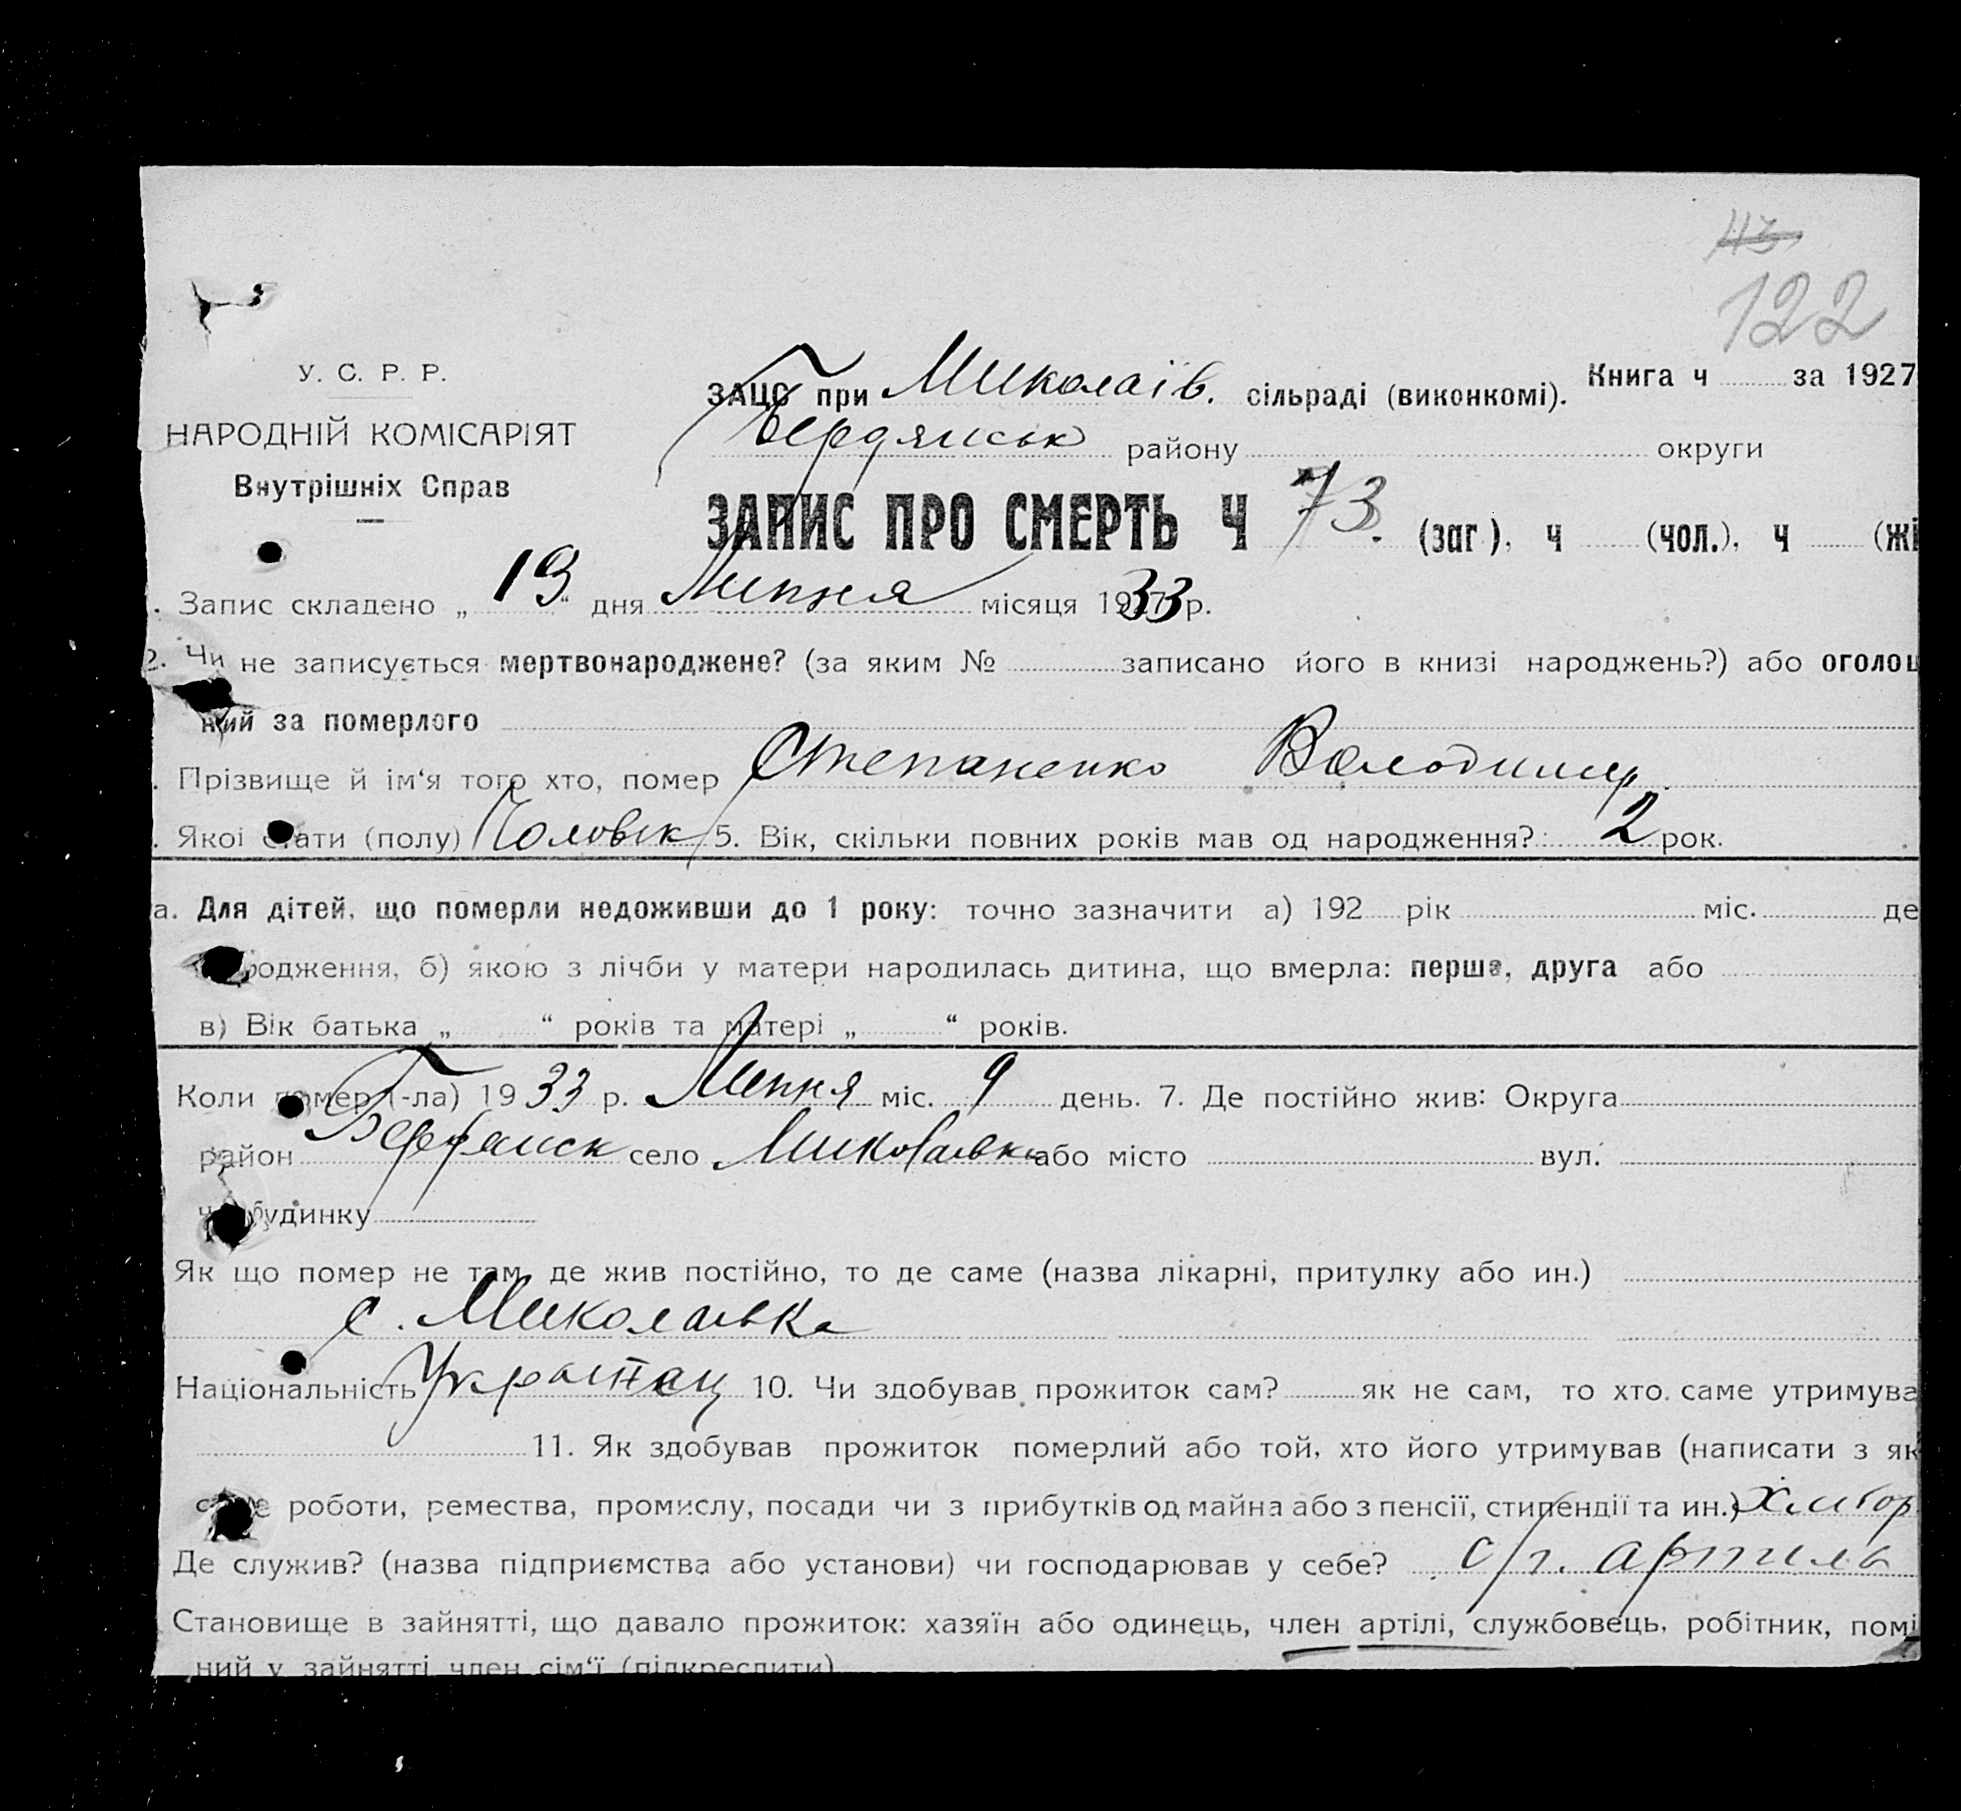 113
122
У. С. Р. Р.
НАРОДНІЙ КОМІСАРІЯТ
Внутрішніх Справ
ЗАЦС при Миколаїв. сільраді (виконкомі). Книга ч за 1927
Бердянськ району округи
ЗАПИС ПРО СМЕРТЬ Ч 73. (заг). ч (чол.), ч (жі
. Запис складено „ 19 “ дня Липня місяця 1933 р.
2. Чи не записується мертвонароджене? (за яким № записано його в книзі народжень?) або оголош
ний за померлого
. Прізвище й ім‘я того хто, помер Степаненко Володимир.
. Якої стати (полу) Чоловік 5. Вік, скільки повних років мав од народження? 2 рок.
а. Для дітей, що померли недоживши до 1 року: точно зазначити а) 192 рік міс. де
родження, б) якою з лічби у матери народилась дитина, що вмерла: перша, друга або
в) Вік батька „ “ років та матері „ “ років.
Коли помер (-ла) 1933 р. Липня міс. 9 день. 7. Де постійно жив: Округа
район Бердянськ село Миколаівка або місто вул.
ч. будинку
Як що помер не там, де жив постійно, то де саме (назва лікарні, притулку або ин.)
с. Миколаівка
Національність Украінец 10. Чи здобував прожиток сам? як не сам, то хто саме утримува
11. Як здобував прожиток померлий або той, хто його утримував (написати з як
саме роботи, ремества, промислу, посади чи з прибутків од майна або з пенсії, стипендії та ин.) Хлибор
Де служив? (назва підприємства або установи) чи господарював у себе? с/г. артиль
Становище в зайнятті, що давало прожиток: хазяїн або одинець, член артілі, службовець, робітник, помі
ний у зайнятті член сім‘ї (підкреслити)